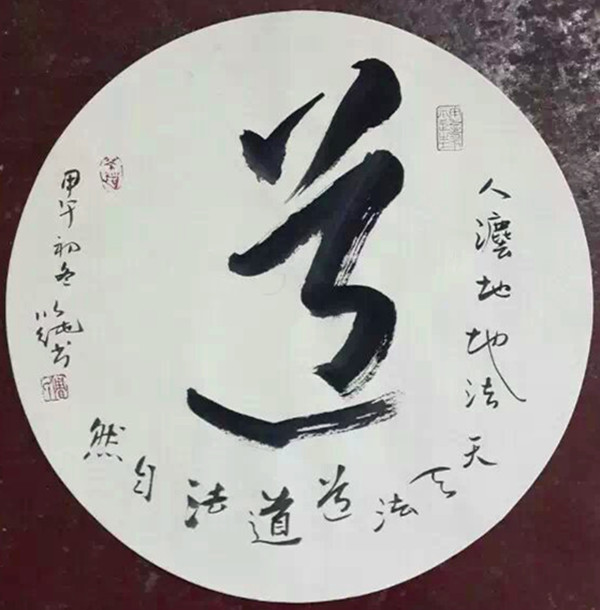 道
人灋地地法天天法道道法自然
甲午初冬
书